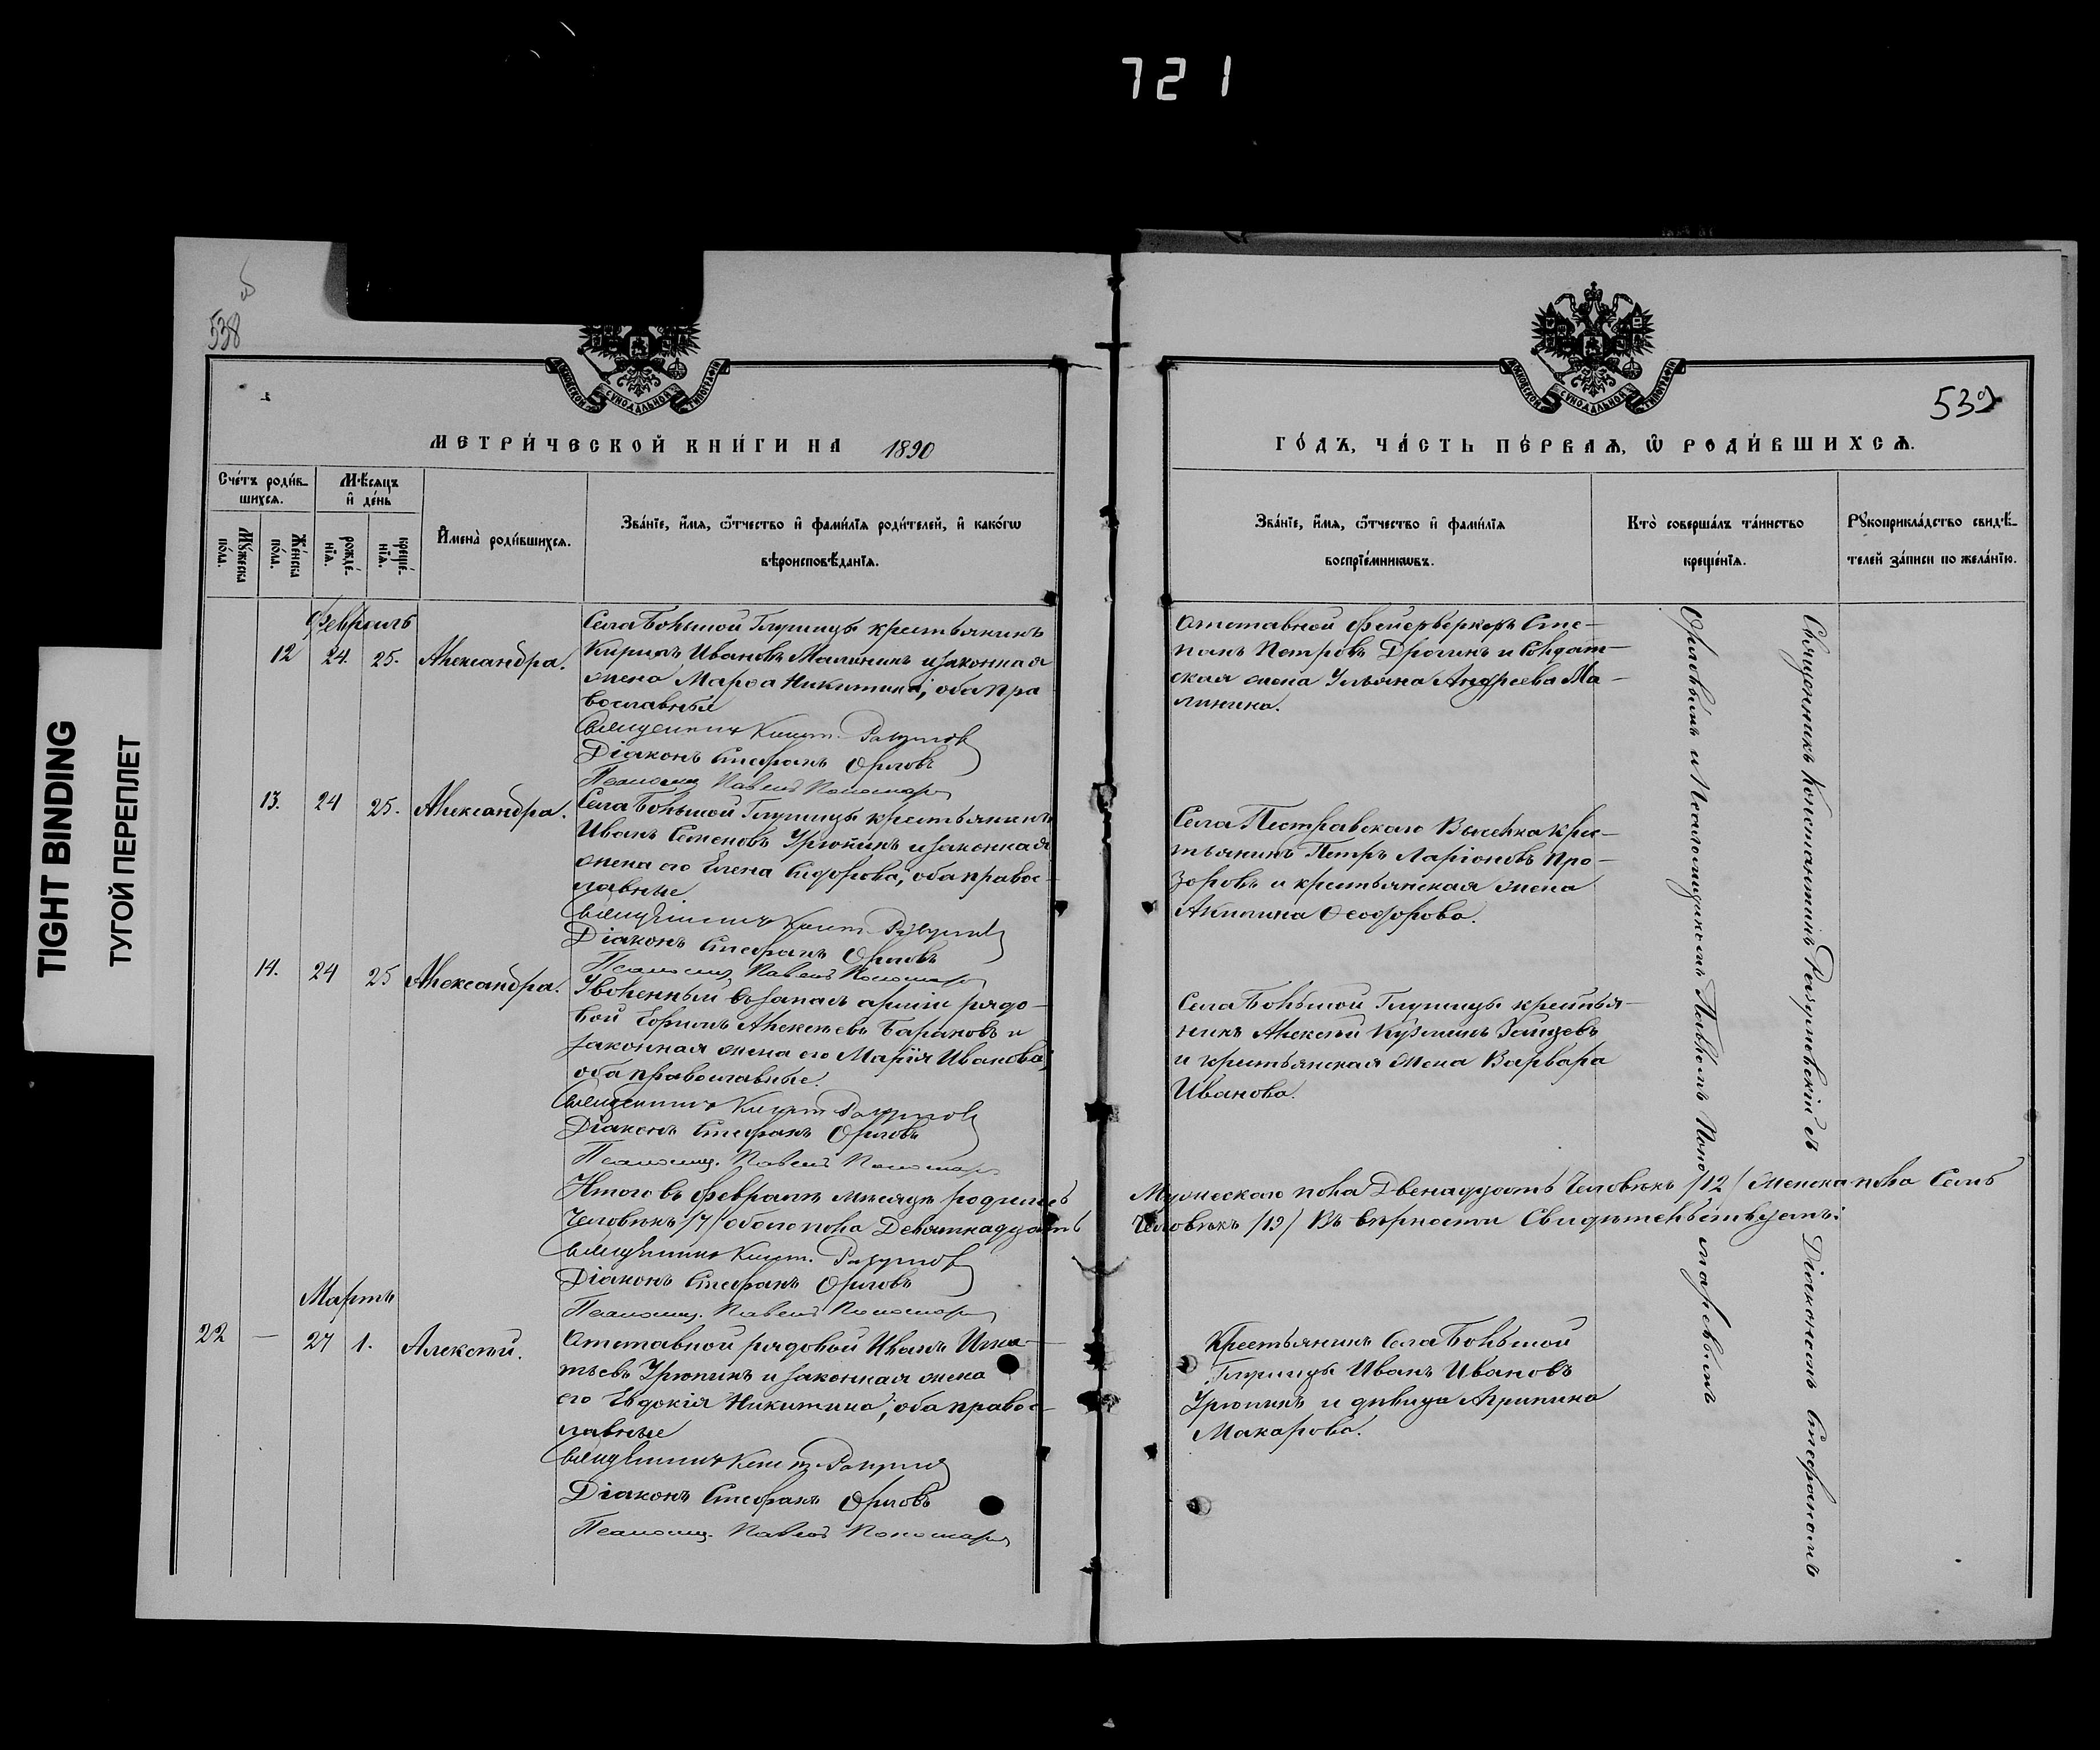 721
TIGHT BINDING
ТУГОЙ ПЕРЕПЛЕТ
538
МОСКОВСКОЙ СѴНОДАЛЬНОЙ ТИПОГРАФІИ
МЕТРИ́ЧЕСКОЙ КНИ́ГИ НА 1890
Сче́тъ роди́в-
шихся.
Мѣ́сяцъ
и҆ де́нь
Мꙋ́жеска
по́ла.
Же́нска
по́ла.
рожде́-
нїѧ.
креще́-
нїѧ.
И҆мена̀ роди́вшихсѧ.
Зва́нїе, и҆́мѧ, ѻ҆́тчество и҆ фами́лїѧ роди́телей, и҆ како́гѡ
вѣроисповѣ́данїѧ.
Февраль
12 24. 25. Александра.
Села Большой Глушицы крестьянинъ
Кирилъ Ивановъ Малининъ и законная
жена Марѳа Никитина, оба пра
вославные
Священникъ Конст. Разумов
Діаконъ Стефанъ Орловъ
Псаломщ. Павелъ Пономар
13. 24 25. Александра.
Села Большой Глушицы крестьянинъ
Иванъ Семеновъ Урюпинъ и законная
жена его Елена Сидорова, оба правос-
лавные
Священникъ Конст. Разумов
Діаконъ Стефанъ Орловъ
Псаломщ. Павелъ Пономар
14. 24 25 Александра.
Уволенный въ запасъ арміи рядо-
вой Ефимъ Алексѣевъ Барановъ и
законная жена его Марія Иванова,
оба православные.
Священникъ Конст Разумов
Діаконъ Стефанъ Орловъ
Псаломщ. Павелъ Пономар
Итого въ Февралѣ мѣсяцѣ родилось
Человѣкъ /7/ обоего пола Девятнадцать
Священникъ Конст. Разумов
Діаконъ Стефанъ Орловъ
Псаломщ. Павелъ Пономар
Мартъ
22 — 27 1. Алексѣй.
Отставной рядовой Иванъ Игна-
тьевъ Урюпинъ и законная жена
его Евдокія Никитина, оба правос-
лавные
Священникъ Конст. Разумов
Діаконъ Стефанъ Орловъ
Псаломщ. Павелъ Пономар
МОСКОВСКОЙ СѴНОДАЛЬНОЙ ТИПОГРАФІИ
539
ГО́ДЪ, ЧА́СТЬ ПЕ́РВАѦ, Ѡ҆ РОДИ́ВШИХСѦ.
Зва́нїе, и҆́мѧ, ѻ҆́тчество и҆ фами́лїѧ
воспрїе́мникѡвъ.
Кто̀ соверша́лъ та́инство
креще́нїѧ.
Рꙋкоприкла́дство свидѣ́-
телей за́писи по жела́нїю.
Отставной фейерверкеръ Сте-
панъ Петровъ Дрогинъ и Солдат-
ская жена Ульяна Андреева Ма-
линина.
Села Пестравского Выселка кре-
тьянинъ Петръ Ларіоновъ Про-
зоровъ и крестьянская жена
Акилина Ѳеодорова.
Села Большой Глушицы крестья-
нинъ Алексѣй Кузминъ Зайцевъ
и крестьянская жена Варвара
Иванова.
Мужескаго пола Двенадцать Человѣкъ /12/ женска пола Семь
Человѣкъ /19/ Въ вѣрности Свидѣтельствуемъ:
Крестьянинъ Села Большой
Глушицы Иванъ Ивановъ
Урюпинъ и дѣвица Агрипина
Макарова.
Священникъ Константинъ Разумовскій съ Діакономъ Стефаномъ
Орловымъ и Псаломщикомъ Павломъ Пономаревымъ